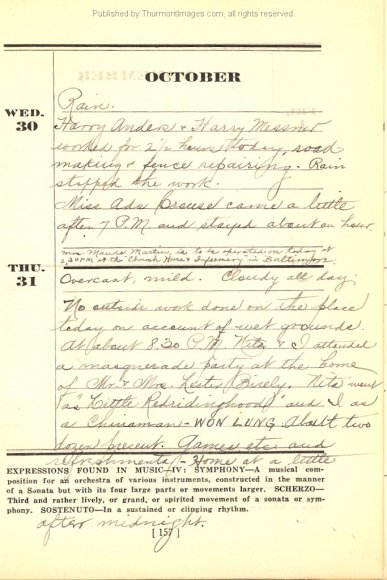 Published by ThurmontImages.com, all rights reserved.
OCTOBER
WED.
30
Rain.
Harry Anders & Harry Messner
worked for 2 1/2 hours today, road
making & fence repairing. Rain
stopped the work.
Miss Ada Crouse came a little
after 7 P.M. and stayed about an hour.
Mrs. Maude Martin, is to be operated on today at
2,30 P.M. at the "Church Home & Infirmary" in Baltimore
THU.
31
Overcast, mild. Cloudy all day.
No outside work done on the place
today on account of wet grounds.
At about 8.30 P.M. Neta & I attended
a masquerade party at the home
of Mr. & Mrs. Lester Birely, Neta went
as "Little Redridinghood" and I as
a Chinaman - WON LUNG. About two
dozen present. Games etc and
refreshments - Home at a little
EXPRESSIONS FOUND IN MUSIC—IV: SYMPHONY—A musical com-
position for an orchestra of various instruments, constructed in the manner
of a Sonata but with its four large parts or movements larger. SCHERZO—
Third and rather lively, or grand, or spirited movement of a sonata or sym-
phony. SOSTENUTO—In a sustained or clinging rhythm.
after midnight.
[ 157 ]